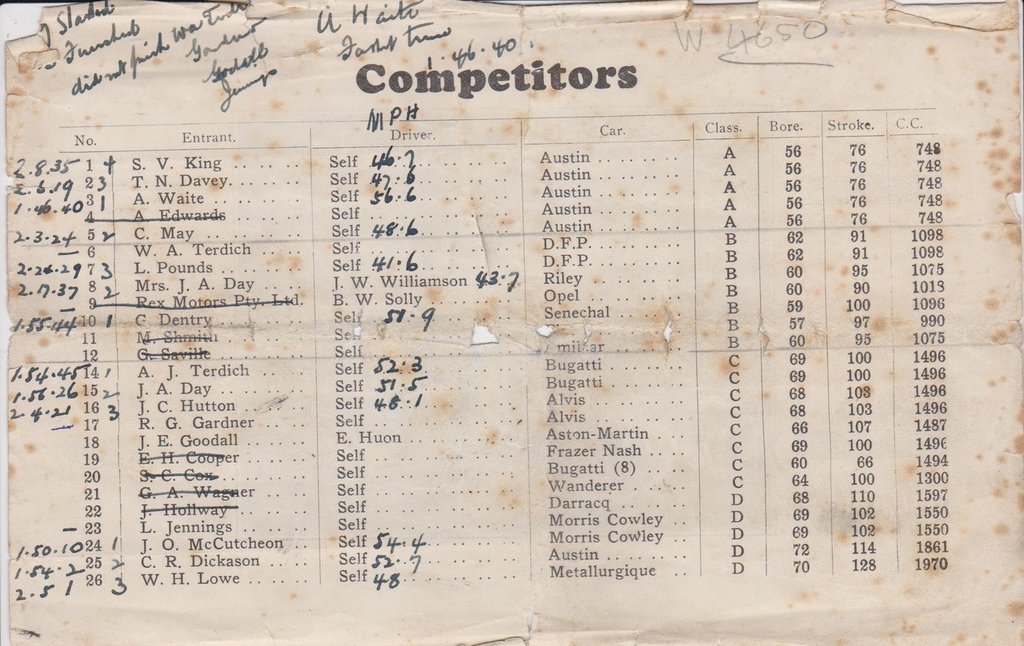 did not finish War Terdich
Gardner
Goodall
Jennings
A Waite
Fastest time
1.46.40
W 4650
Competitors
MPH
No. Entrant. Driver. Car. Class. Bore. Stroke. C.C.
2.8.35 1 4 S. V. King Self 46.7 Austin A 56 76 748
2.6.19 2 3 T. N. Davey Self 47.6 Austin A 56 76 748
1.46.40 3 1 A. Waite Self 56.6 Austin A 56 76 748
4 A. Edwards Self Austin A 56 76 748
2.3.24 5 2 C. May Self 48.6 Austin A 56 76 748
– 6 W. A. Terdich Self D.F.P. B 62 91 1098
2.24.29 7 3 L. Pounds Self 41.6 D.F.P. B 62 91 1098
2.17.37 8 2 Mrs. J. A. Day J. W. Williamson 43.7 Riley B 60 95 1075
9 Rex Motors Pty. Ltd. B. W. Solly Opel B 60 90 1013
1.55.44 10 1 C Dentry Self 51.9 Senechal B 59 100 1096
11 M. Shmith Self B 57 97 990
12 G. Saville Self Amilcar B 60 95 1075
1.54.45 14 1 A. J. Terdich Self 52.3 Bugatti C 69 100 1496
1.56.26 15 2 J. A. Day Self 51.5 Bugatti C 69 100 1496
2.4.21 16 3 J. C. Hutton Self 48.1 Alvis C 68 103 1496
– 17 R. G. Gardner Self Alvis C 68 103 1496
18 J. E. Goodall E. Huon Aston-Martin C 66 107 1487
19 E. H. Cooper Self Frazer Nash C 69 100 1496
20 S. C. Cox Self Bugatti (8) C 60 66 1494
21 G. A. Wagner Self Wanderer C 64 100 1300
22 J. Hollway Self Darracq D 68 110 1597
– 23 L. Jennings Self Morris Cowley D 69 102 1550
1.50.10 24 1 J. O. McCutcheon Self 54.4 Morris Cowley D 69 102 1550
1.54.2 25 2 C. R. Dickason Self 52.7 Austin D 72 114 1861
2.5.1 26 3 W. H. Lowe Self 48 Metallurgique D 70 128 1970